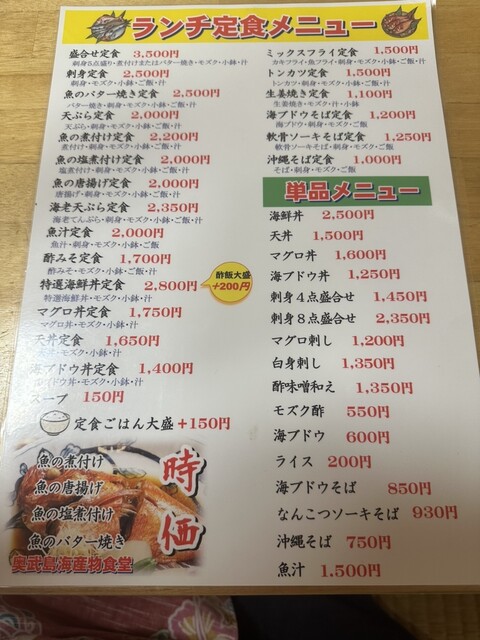 ランチ定食メニュー
盛合せ定食 3,500円
刺身5点盛り・煮付けまたはバター焼き・モズク・小鉢・ご飯・汁
刺身定食 2,500円
刺身・モズク・小鉢・ご飯・汁
魚のバター焼き定食 2,500円
バター焼き・刺身・モズク・小鉢・ご飯・汁
天ぷら定食 2,000円
天ぷら・刺身・モズク・小鉢・ご飯・汁
魚の煮付け定食 2,200円
煮付け・刺身・モズク・小鉢・ご飯・汁
魚の塩煮付け定食 2,000円
塩煮付け・刺身・モズク・小鉢・ご飯・汁
魚の唐揚げ定食 2,000円
唐揚げ・刺身・モズク・小鉢・ご飯・汁
海老天ぷら定食 2,350円
海老てんぷら・刺身・モズク・小鉢・ご飯・汁
魚汁定食 2,000円
魚汁・刺身・モズク・小鉢・ご飯
酢みそ定食 1,700円
酢みそ・モズク・小鉢・ご飯・汁
特選海鮮丼定食 2,800円
特選海鮮丼・モズク・小鉢・汁
酢飯大盛
+200円
マグロ丼定食 1,750円
マグロ丼・モズク・小鉢・汁
天丼定食 1,650円
天丼・モズク・小鉢・汁
海ブドウ丼定食 1,400円
海ブドウ丼・モズク・小鉢・汁
スープ 150円
定食ごはん大盛+150円
魚の煮付け
魚の唐揚げ
魚の塩煮付け
魚のバター焼き
時価
奥武島海産物食堂
ミックスフライ定食 1,500円
カキフライ・魚フライ・刺身・モズク・小鉢・ご飯・汁
トンカツ定食 1,500円
トンカツ・刺身・モズク・小鉢・ご飯・汁
生姜焼き定食 1,100円
生姜焼き・モズク・小鉢・汁
海ブドウそば定食 1,200円
海ブドウ・刺身・モズク・小鉢・ご飯
軟骨ソーキそば定食 1,250円
軟骨ソーキそば・刺身・モズク・小鉢・ご飯
沖縄そば定食 1,000円
そば・刺身・モズク・小鉢・ご飯
単品メニュー
海鮮丼 2,500円
天丼 1,500円
マグロ丼 1,600円
海ブドウ丼 1,250円
刺身4点盛合せ 1,450円
刺身8点盛合せ 2,350円
マグロ刺し 1,200円
白身刺し 1,350円
酢味噌和え 1,350円
モズク酢 550円
海ブドウ 600円
ライス 200円
海ブドウそば 850円
なんこつソーキそば 930円
沖縄そば 750円
魚汁 1,500円